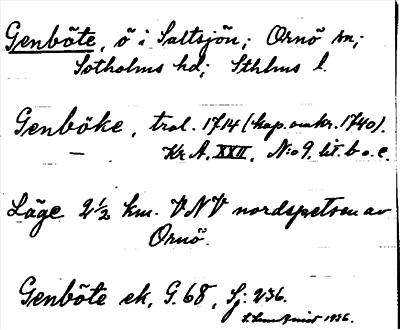 Genböte, ö i Saltsjön; Ornö sn;
Sotholms hd; Sthlms l.
Genböke, trol. 1714 (kop. omkr. 1740).
— Kr. A. XXII, N:o 9. lit. b o. c.
Läge 2½ km. VNV nordspetsen av
Ornö.
Genböte ek, G. 68, Sj: 236.
1936.